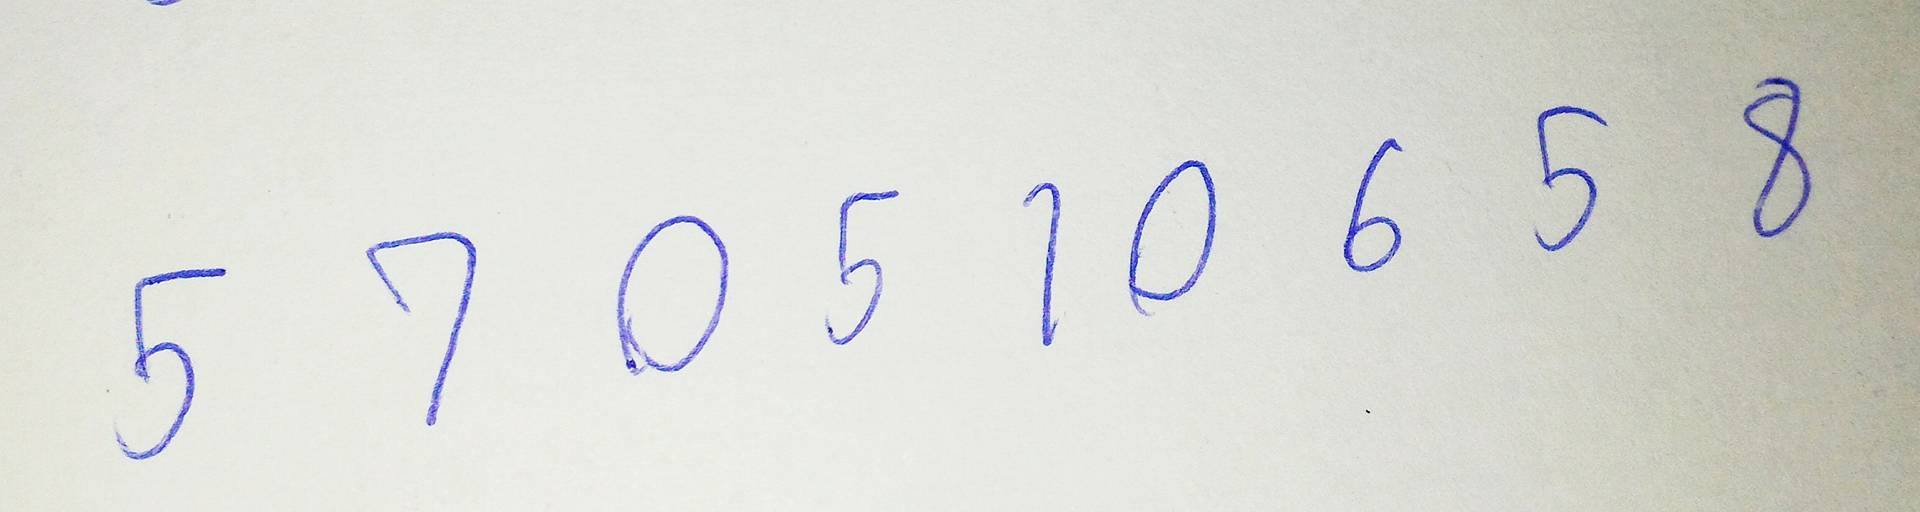 5 7 0 5 1 0 6 5 8